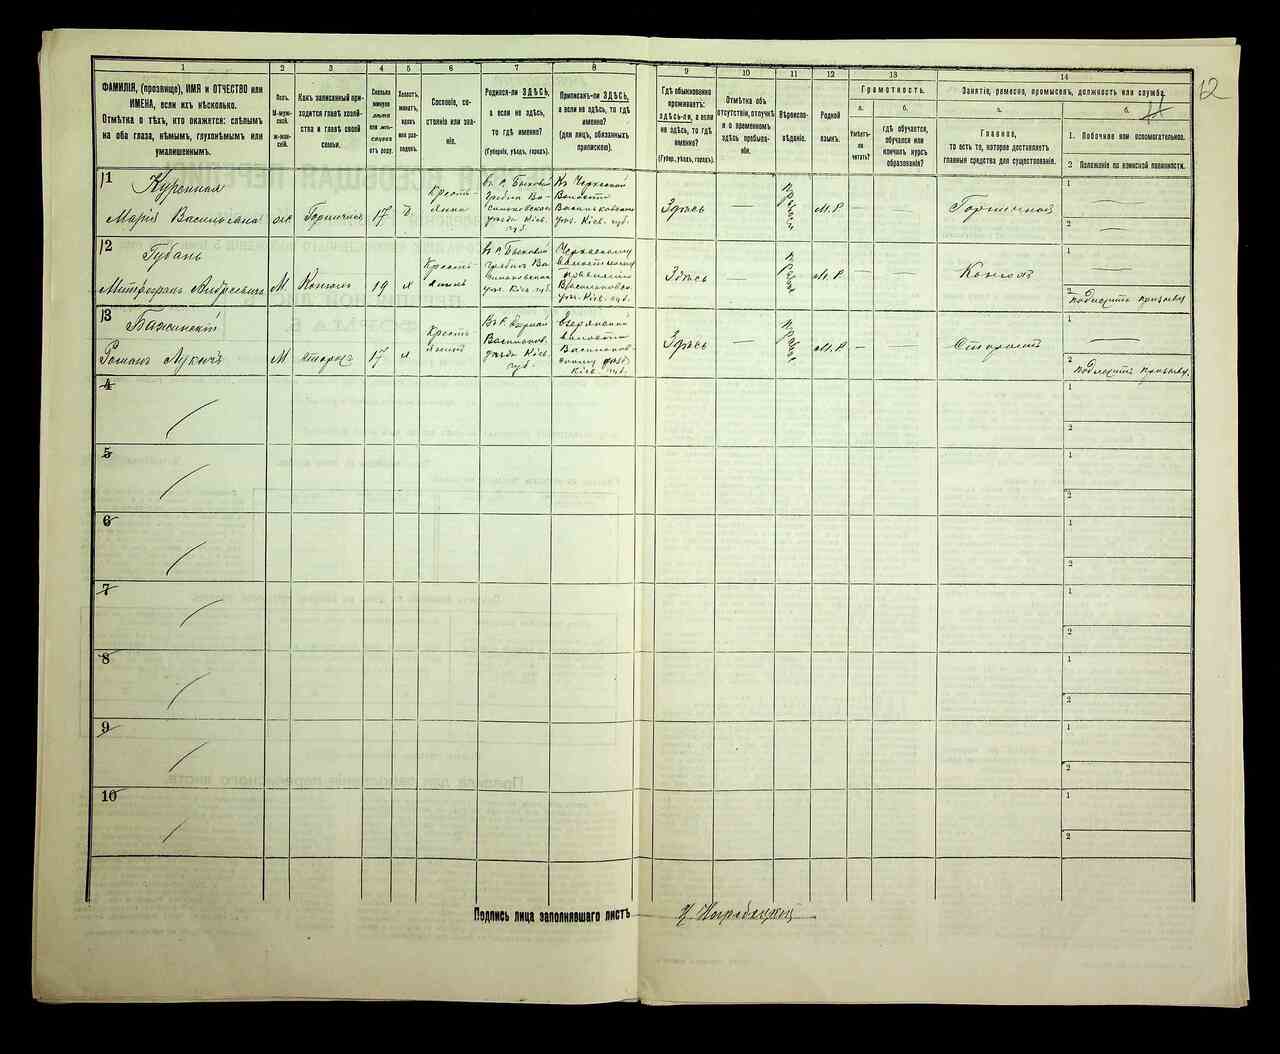 12
1
2
3
4
5
6
7
8
9
10
11
12
13
14
ФАМИЛІЯ, (прозвище), ИМЯ и ОТЧЕСТВО или
ИМЕНА, если ихъ нѣсколько.
Отмѣтка о тѣхъ, кто окажется: слѣпымъ
на оба глаза, нѣмымъ, глухонѣмымъ или
умалишеннымъ.
Полъ.
М-муж-
ской.
ж-жен-
скій.
Какъ записанный при-
ходится главѣ хозяй-
ства и главѣ своей
семьи.
Сколько
минуло
лѣтъ
или мѣ-
сяцевъ
отъ роду.
Холостъ,
женатъ,
вдовъ
или раз-
веденъ.
Сословіе, со-
стояніе или зва-
ніе.
Родился-ли ЗДѢСЬ,
а если не здѣсь,
то гдѣ именно?
(Губернія, уѣздъ, городъ).
Приписанъ-ли ЗДѢСЬ,
а если не здѣсь, то гдѣ
именно?
(для лицъ, обязанныхъ
припискою).
Гдѣ обыкновенно
проживаетъ:
ЗДѢСЬ-ли, а если
не здѣсь, то гдѣ
именно?
(Губер., уѣздъ, городъ).
Отмѣтка объ
отсутствіи, отлучкѣ
и о временномъ
здѣсь пребыва-
ніи.
Вѣроиспо-
вѣданіе.
Родной
языкъ.
Грамотность.
а.
б.
Умѣетъ-
ли
читать?
гдѣ обучается,
обучался или
кончилъ курсъ
образованія?
Занятіе, ремесло, промыселъ, должность или служба.
а.
б.
Главное,
то есть то, которое доставляетъ
главныя средства для существованія.
1. Побочное или вспомогательное.
2 Положеніе по воинской повинности.
11
Куренная
Марія Васильевна
ж
Горничная
17
д
Кресть-
янка
въ с. Быковой
Гребли Ва-
сильковскаго
уѣзда Кіев.
губ.
Къ Черкасской
Волости
Васильковскаго
уѣз. Кіев. губ.
Здѣсь
—
М.Р
—
—
Горничной
1
—
2
—
12
Губань
Митрофанъ Андреевичъ
М
Конюхъ
19
х
Крестъ
янинъ
въ с. Быковой
Гребли Ва-
сильковскаго
уѣз. Кіев. губ.
Здѣсь
—
М.Р
—
—
Конюхъ
1
—
2
подлежитъ призыву
13
Бажинскій
Романъ Лукичъ
М
сторожъ
17
х
Кресть
янинъ
Васильков.
уѣзда Кіев.
губ.
волости
Кіев. губ.
Здѣсь
—
М.Р
—
—
Сторожъ
1
—
2
подлежитъ призыву.
4
1
2
5
1
2
6
1
2
7
1
2
8
1
2
9
1
2
10
1
2
Подпись лица заполнявшаго листъ